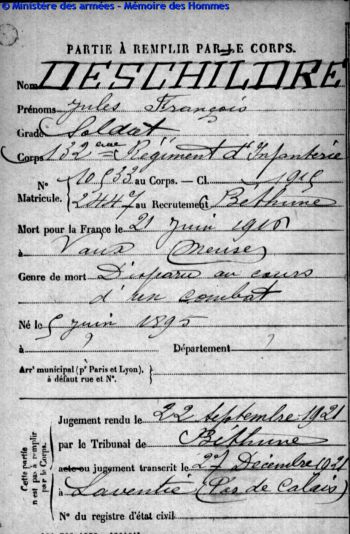 © Ministère des armées - Mémoire des Hommes
PARTIE À REMPLIR PAR LE CORPS.
Nom DESCHILDRE
Prénoms Jules François
Grade Soldat
Corps 132eme Régiment d'Infanterie
N° 10533 au Corps. — Cl. 1915
Matricule. 2447 au Recrutement Béthune
Mort pour la France le 21 juin 1916
à Vaux (Meuse)
Genre de mort Disparu au cours
d'un combat
Né le 5 juin 1895
à ? Département ?
Arrt municipal (pr Paris et Lyon),
à défaut rue et N°.
Cette partie
n'est pas à remplir
par le Corps.
Jugement rendu le 22 septembre 1921
par le Tribunal de Béthune
acte ou jugement transcrit le 27 Décembre 1921
à Laventie (Pas de Calais)
N° du registre d'état civil